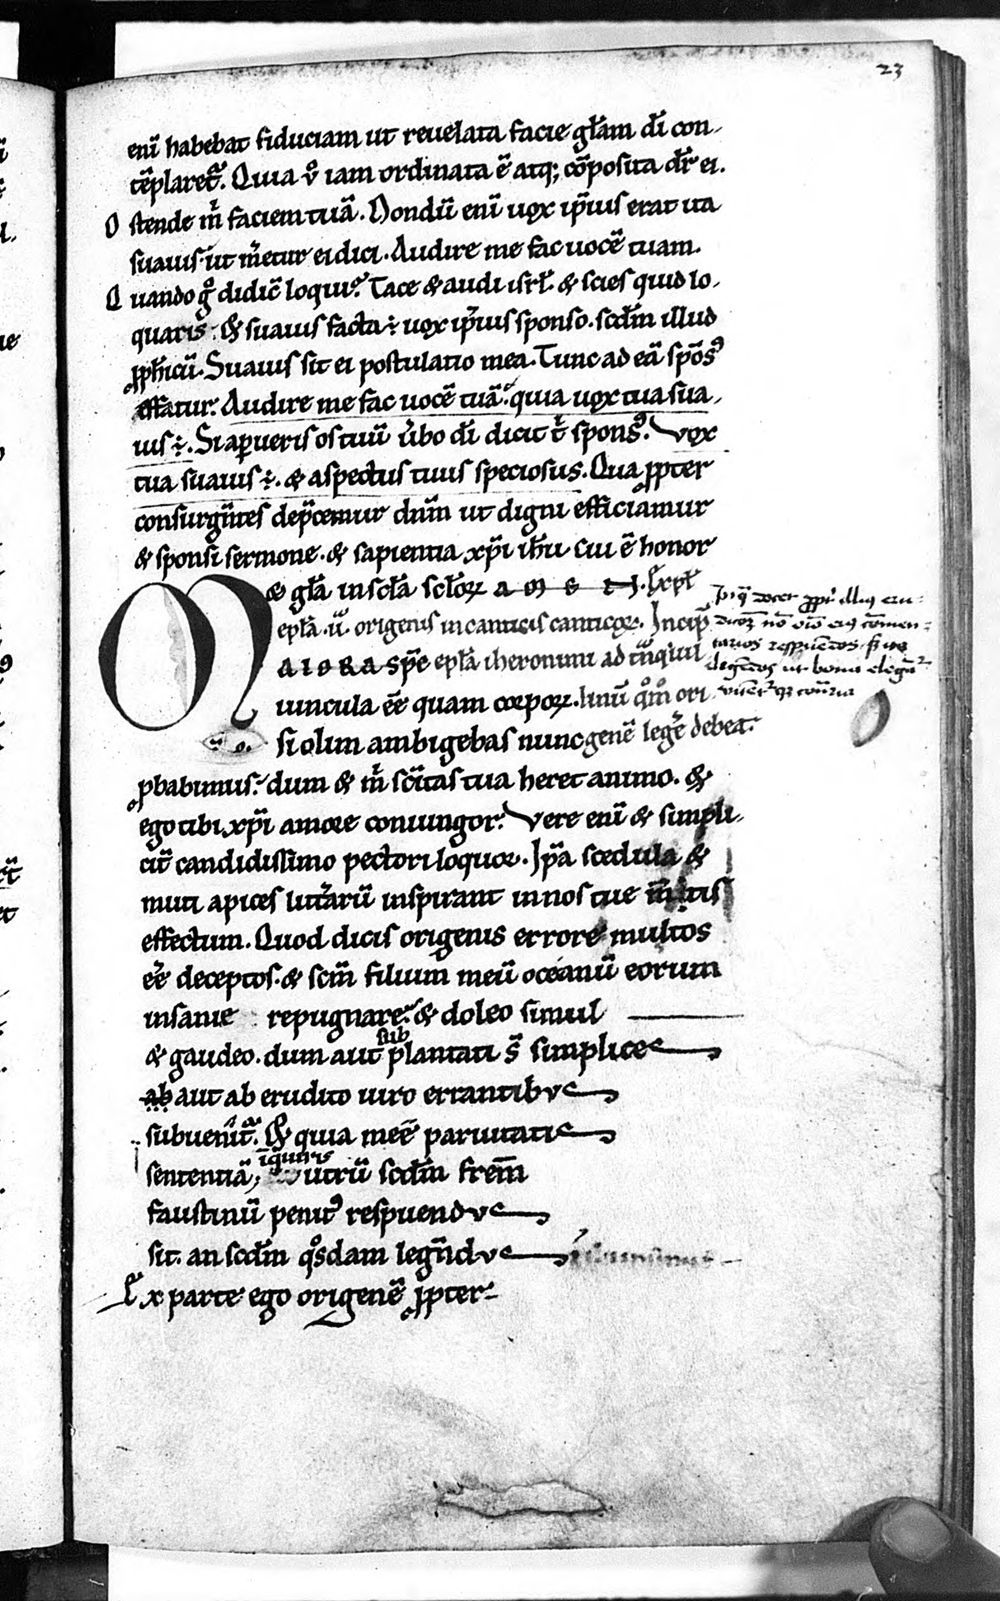 23
eni̅ habebat fiduciam ut reuelata facie gl̅am di̅ con-
te̅plaret᷑. Quia v̊ iam ordinata e̅ atq; co̅posita dr̅ ei.
O stende m̅ faciem tua̅. Nondu̅ eni̅ uox ip̅ius erat ita
suauis ut m̅etur ei dici. Audire me fac uoce̅ tuam.
Q uando g̊ didic̅ loqui. Tace & audi isrl̅ & scies quid lo-
quaris. & suauis facta ÷ uox ip̅ius sponso. scdm̅ illud
pph̅icu̅. Suauis sit ei postulatio mea. Tunc ad ea̅ spo̅sꝰ
effatur. Audire me fac uoce̅ tua̅. quia uox tua sua-
uis ÷. Si apueris os tuu̅ u̅bo di̅ dicit t̅ sponsꝰ. Vox
tua suauis ÷. & aspectus tuus speciosus. Qua ppter
consurgn̅tes dep̅cemur dnm̅ ut digni efficiamur
& sponsi sermone. & sapientia xp̅i ih̅u cui e̅ honor
& gl̅a in scl̅a scl̅oꝝ A M E N. Expl̅
epl̅a .ii. origenis in canticis canticoꝝ. Incip̅
MAIORA sp̅e epl̅a iheronimi ad tn̅quil
iuncula e̅e quam corpoꝝ. linu̅ qm̊o ori
si olim ambigebas nunc gene̅ lege̅ debeat.
pbabimus. dum & m̅ sc̅itas tua heret animo. &
ego tibi xp̅i amore coniungor. Vere eni̅ & simpli-
cit̅ candidissimo pectori loquor. Ip̅a scedula &
muti apices litt̅aru̅ inspirant in nos tue m̅tis
effectum. Quod dicis origenis errore multos
e̅e deceptos. & scm̅ filium meu̅ oceanu̅ eorum
insanie repugnare. & doleo simul
& gaudeo. dum aut sub
plantati s̅ simplices
ab aut ab erudito uiro errantibus
subuenit᷑. & quia mee̅ paruitatis
sententia̅, iq̅uiris utru̅ scdm̅ frem̅
faustinu̅ penitꝰ respuendus
sit. an scdm̅ qs̊dam legn̅dus
Ex parte ego origene̅ ppter-